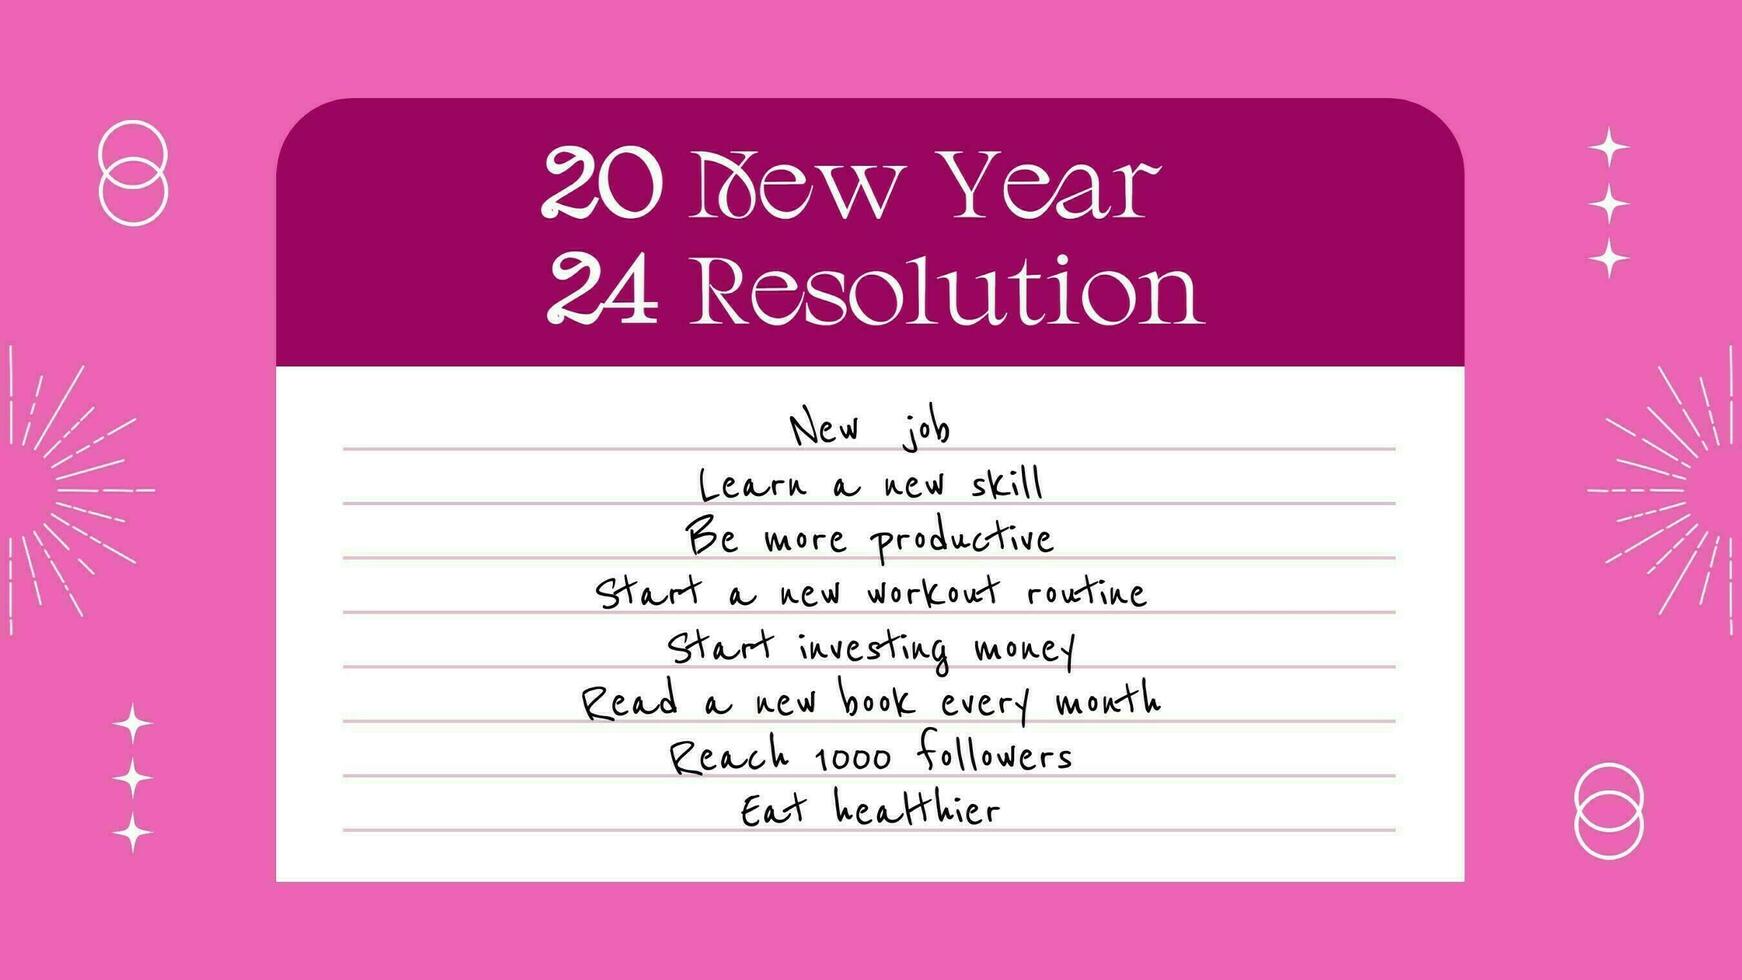 20 New Year
24 Resolution
New job
Learn a new skill
Be more productive
Start a new workout routine
Start investing money
Read a new book every month
Reach 1000 followers
Eat healthier